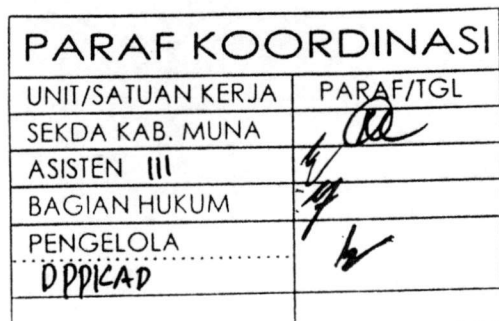 PARAF KOORDINASI
UNIT/SATUAN KERJA PARAF/TGL
SEKDA KAB. MUNA
ASISTEN III
BAGIAN HUKUM
PENGELOLA
DPPKAD